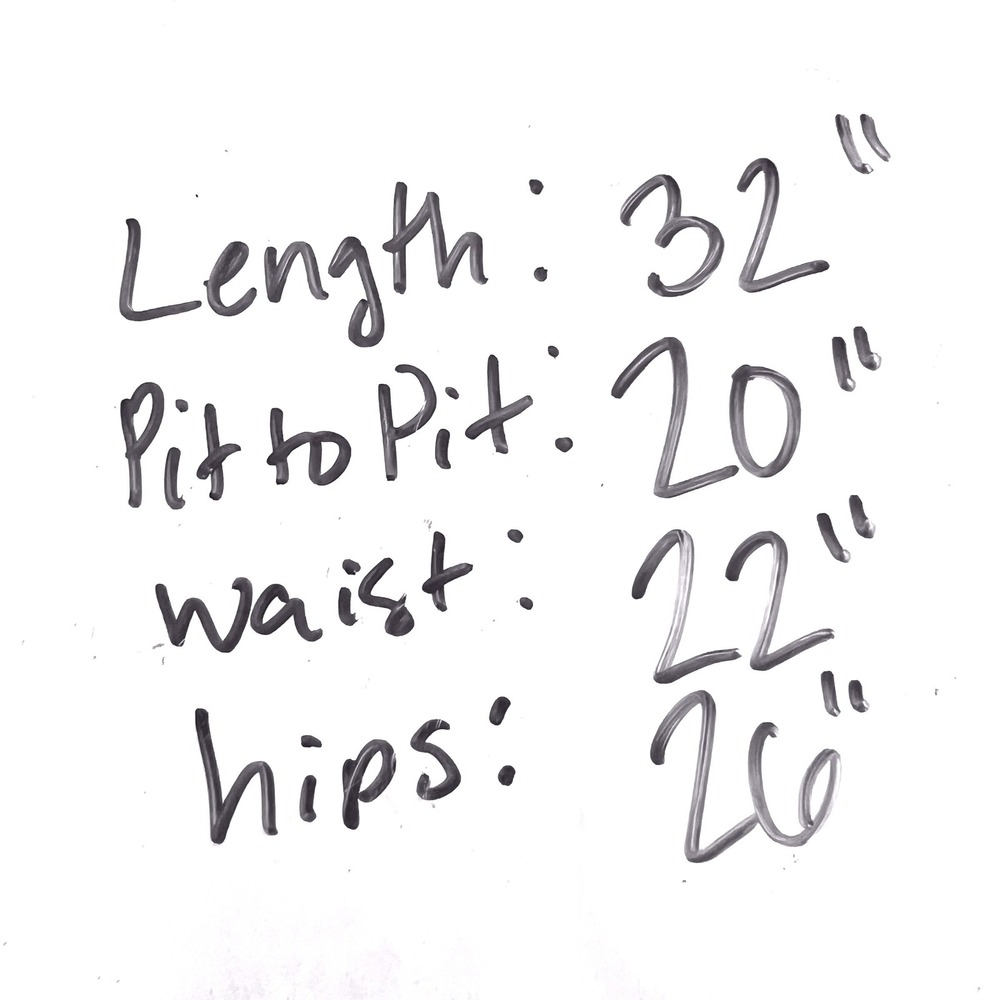 Length: 32"
Pit to Pit: 20"
waist: 22"
hips: 26"